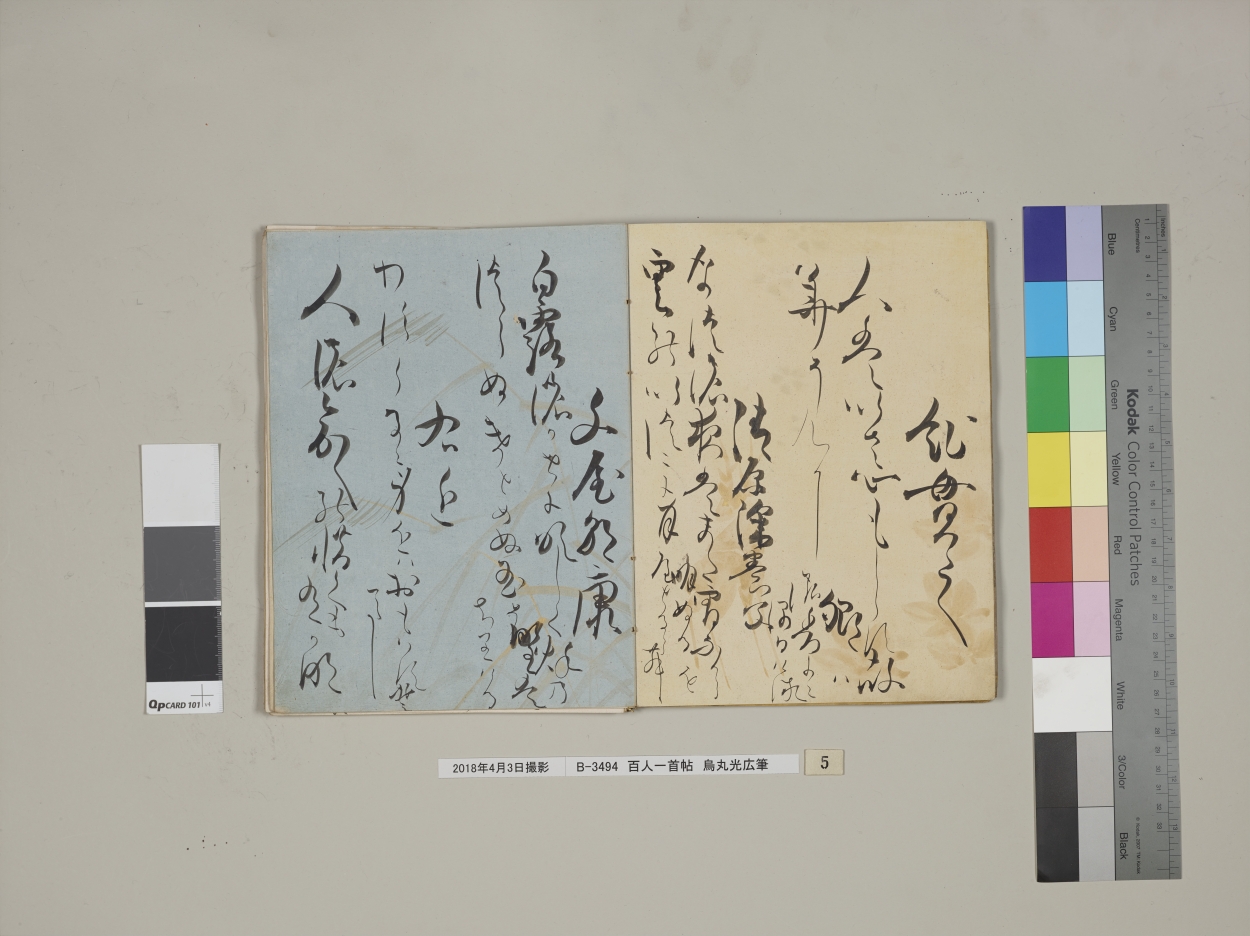 紀貫之
人はいさ心もしらす故
郷ハ
華そむかしの
香に
清原深養父
なつの夜はまた宵なから
明ぬるを
雲のいつこに月やとるらむ
文屋朝康
白露に風の吹しく秋の
野は
つらぬきとめぬ玉そ
ちりける
右近
わすらるゝ身をハおもはす
人の命の惜くもある哉
2018年4月3日撮影 B-3494 百人一首帖 烏丸光広筆 5
QpCARD 101 v4
Kodak Color Control Patches
Blue
Cyan
Green
Yellow
Red
Magenta
White
3/Color
Black
Inches
Centimetres